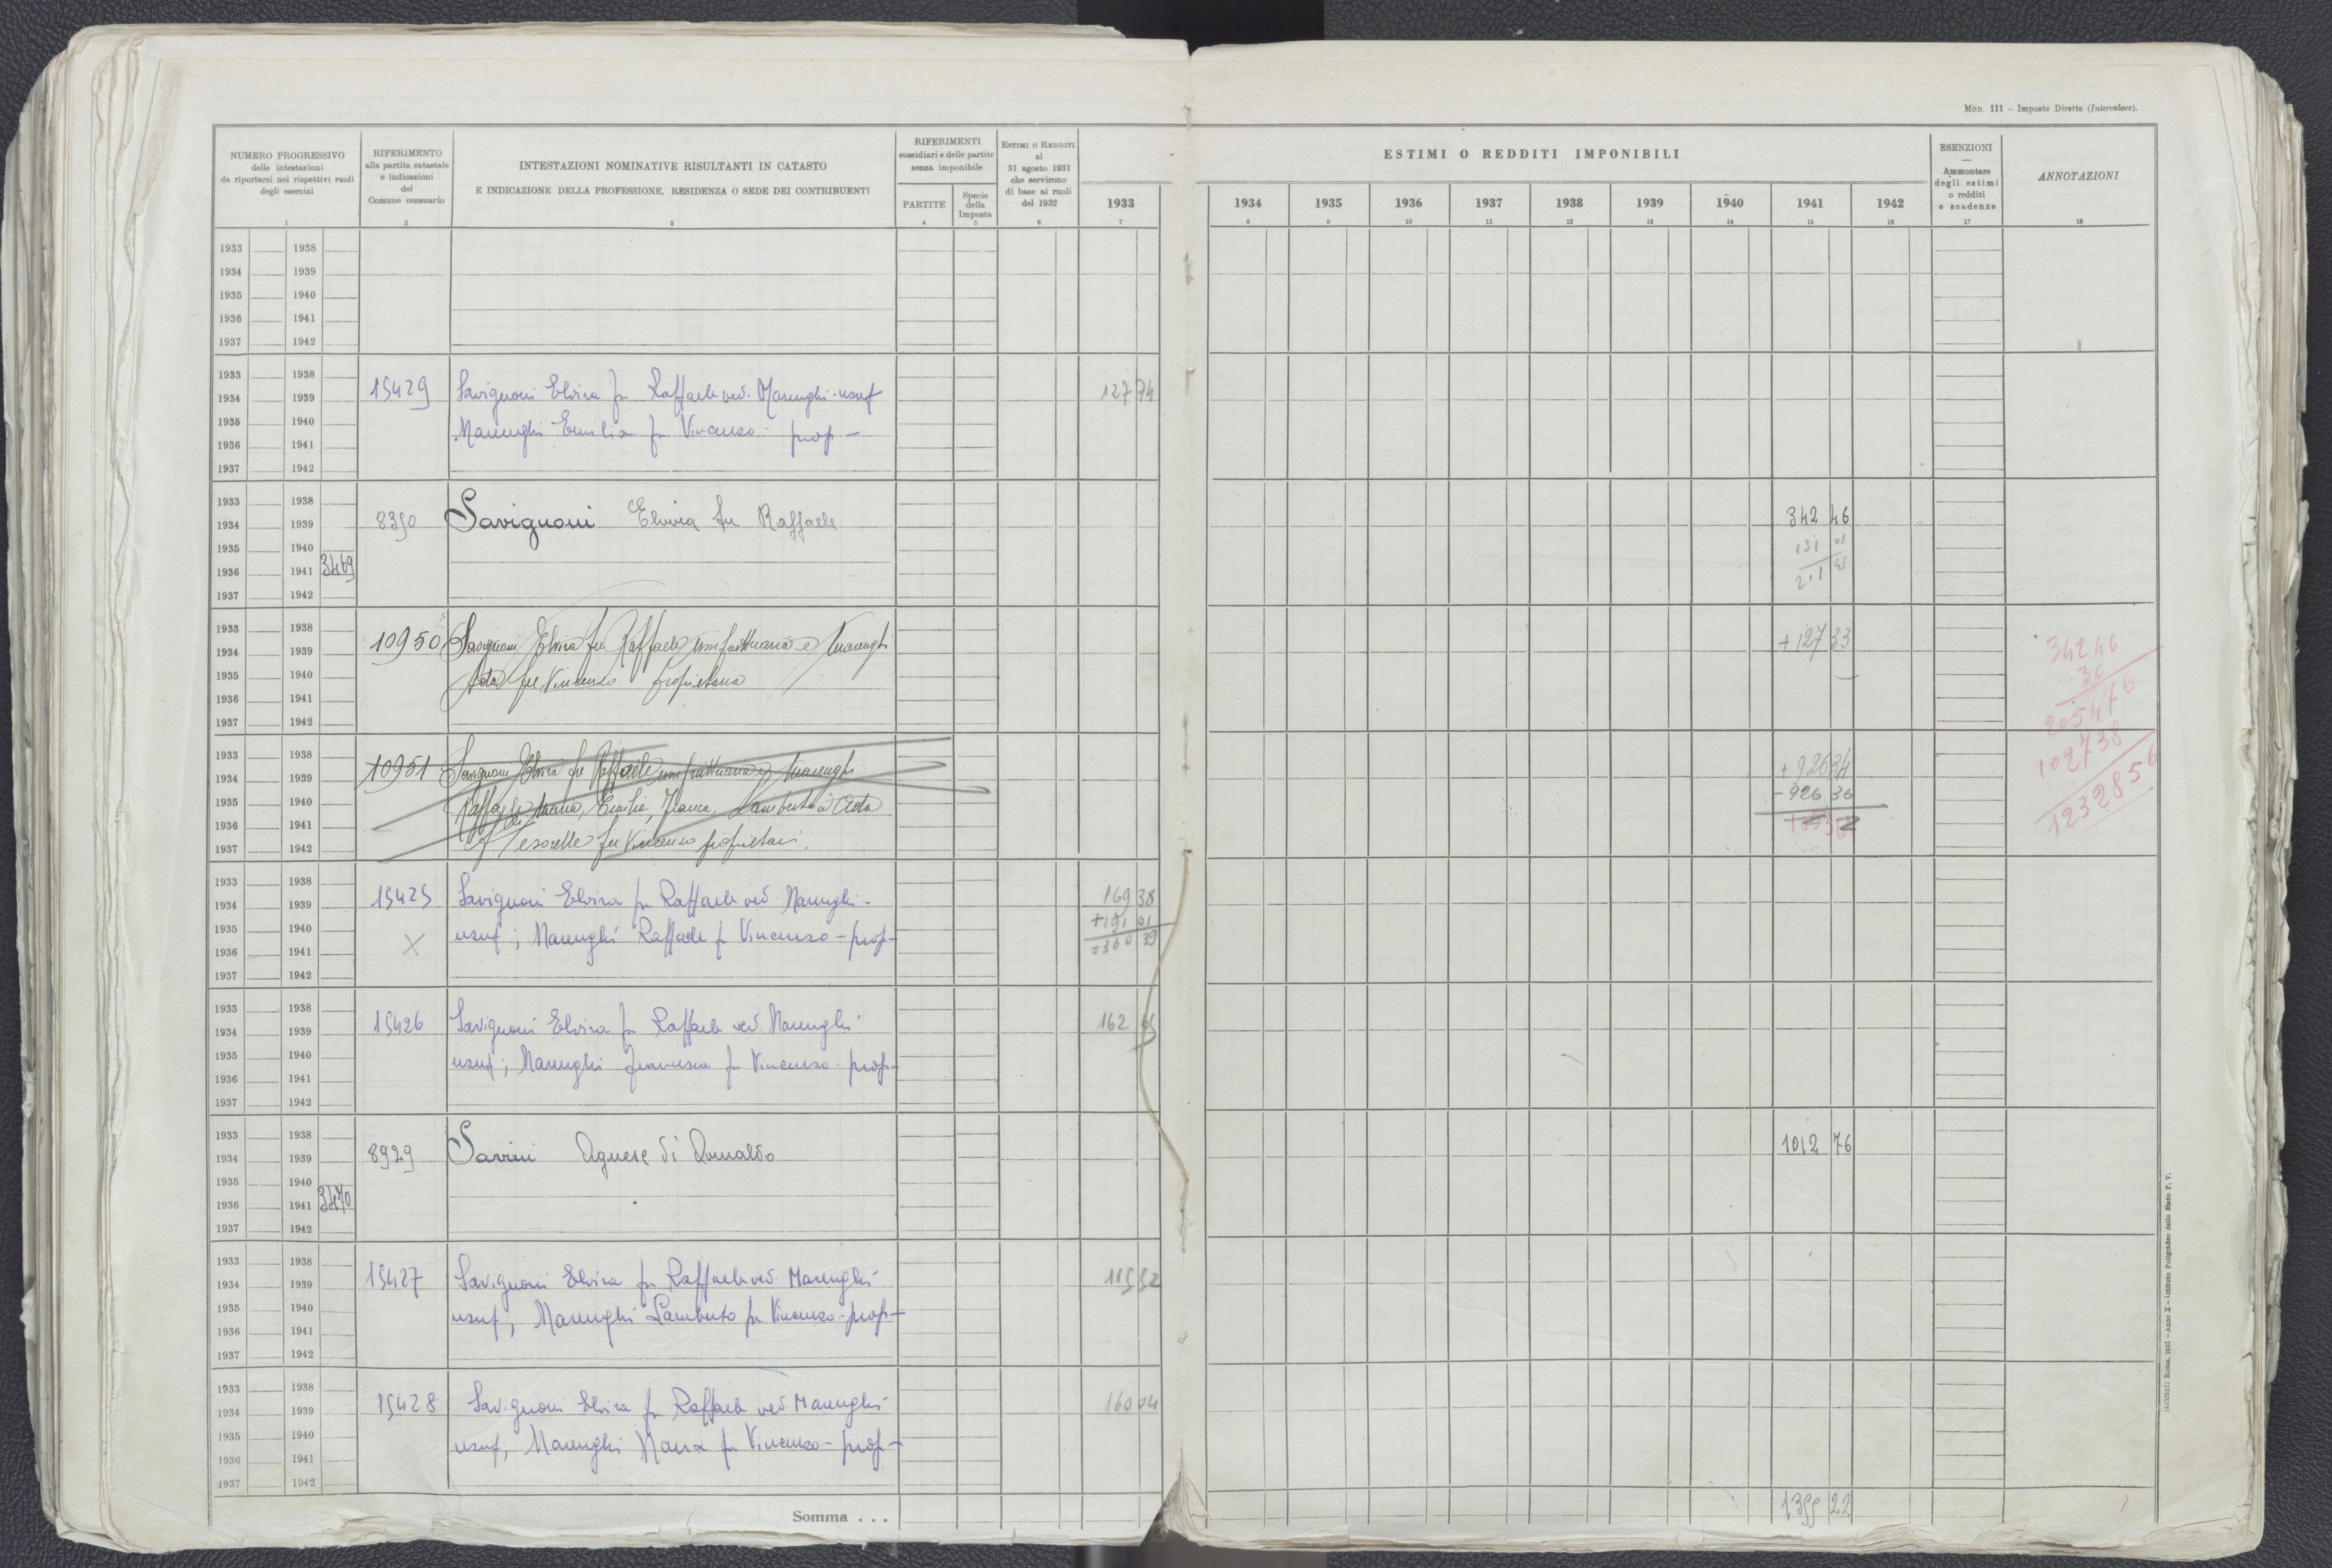 Mod. 111 – Imposte Dirette (Intercalare).
NUMERO PROGRESSIVO
delle intestazioni
da riportarsi nei rispettivi ruoli
degli esercizi
1
RIFERIMENTO
alla partita catastale
e indicazioni
del
Comune censuario
2
INTESTAZIONI NOMINATIVE RISULTANTI IN CATASTO
E INDICAZIONE DELLA PROFESSIONE, RESIDENZA O SEDE DEI CONTRIBUENTI
3
RIFERIMENTI
sussidiari e delle partite
senza imponibile
PARTITE
4
Specie
della
Imposta
5
ESTIMI O REDDITI
al
31 agosto 1931
che servirono
di base ai ruoli
del 1932
6
1933
7
ESTIMI O REDDITI IMPONIBILI
1934 1935 1936 1937 1938 1939 1940 1941 1942
8 9 10 11 12 13 14 15 16
ESENZIONI
—
Ammontare
degli estimi
o redditi
e scadenze
17
ANNOTAZIONI
18
1933 1938
1934 1939
1935 1940
1936 1941
1937 1942
1933 1938
1934 1939 15429 Savignoni Elvira fu Raffaele ved. Marenghi - usuf 127 74
1935 1940 Marenghi Emilia fu Vincenzo - prop -
1936 1941
1937 1942
1933 1938
1934 1939 8350 Savignoni Elvira fu Raffaele 342 46
1935 1940 131 01
1936 1941 3469 211 45
1937 1942
1933 1938
1934 1939 10950 Savignoni Elvira fu Raffaele usufruttuaria e Marenghi +127 33 342 46
1935 1940 Ada fu Vincenzo proprietaria
1936 1941 205476
1937 1942
1933 1938 102738
1934 1939 10951 Savignoni Elvira fu Raffaele usufruttuaria e Marenghi + 926 34
1935 1940 Raffaele, Maria, Emilia, Franca, Lamberto e Ada - 926 36 1232856
1936 1941
1937 1942 fu Vincenzo proprietari.
1933 1938
1934 1939 15425 Savignoni Elvira fu Raffaele ved. Marenghi - 169 38
1935 1940 +191 01
1936 1941 X usuf; Marenghi Raffaele fu Vincenzo - prop - =360 39
1937 1942
1933 1938
1934 1939 15426 Savignoni Elvira fu Raffaele ved. Marenghi 162 65
1935 1940 usuf; Marenghi Francesca fu Vincenzo - prop -
1936 1941
1937 1942
1933 1938
1934 1939 8929 Savini Agnese di Romaldo 1012 76
1935 1940
1936 1941 3470
1937 1942
1933 1938
1934 1939 15427 Savignoni Elvira fu Raffaele ved. Marenghi 115 52
1935 1940 usuf, Marenghi Lamberto fu Vincenzo - prop -
1936 1941
1937 1942
1933 1938
1934 1939 15428 Savignoni Elvira fu Raffaele ved. Marenghi 160 04
1935 1940 usuf; Marenghi Maria fu Vincenzo - prop -
1936 1941
1937 1942
Somma . . . 1355 22
Roma, 1931 - Anno X - Istituto Poligrafico dello Stato P. V.